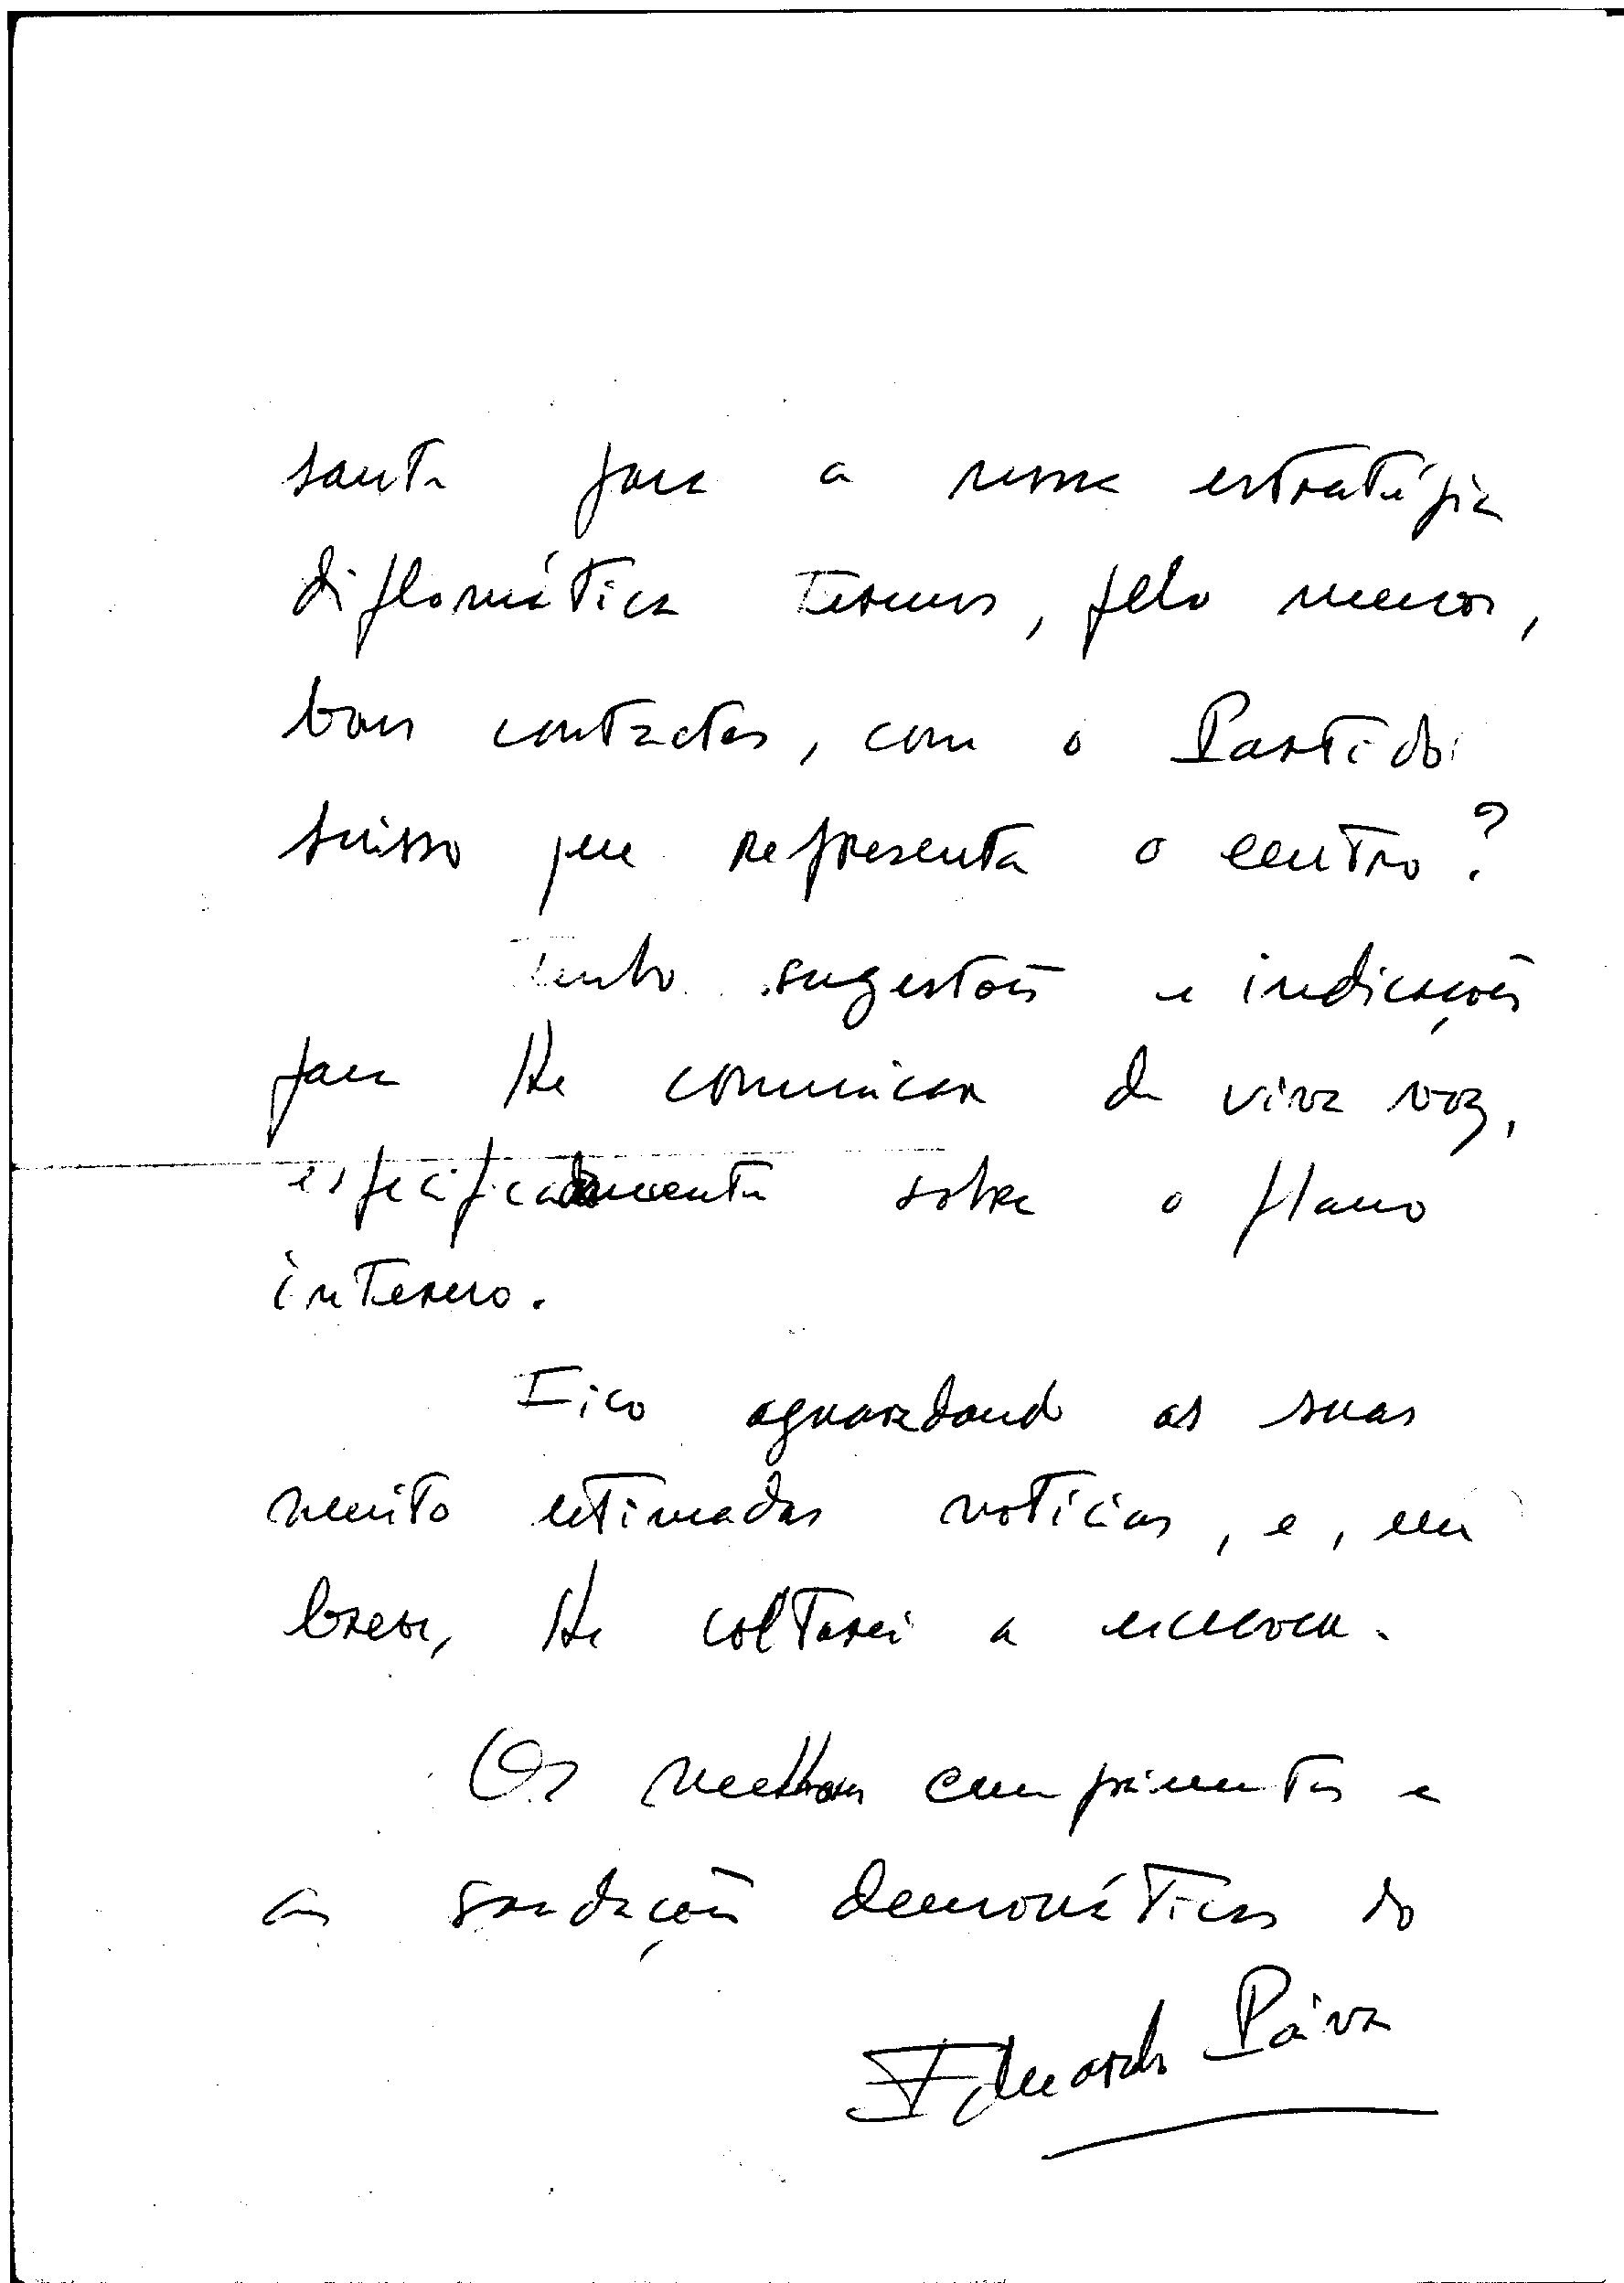 sante para a nossa estratégia
diplomática termos, pelo menos,
bons contactos, com o Partido
suisso que representa o centro?
Tenho sugestões e indicações
para lhe comunicar de viva voz,
especificadamente sobre o plano
interno.
Fico aguardando as suas
muito estimadas notícias, e, em
breve, lhe voltarei a escrever.
Os melhores cumprimentos e
as saudações democráticas do
Eduardo Paiva